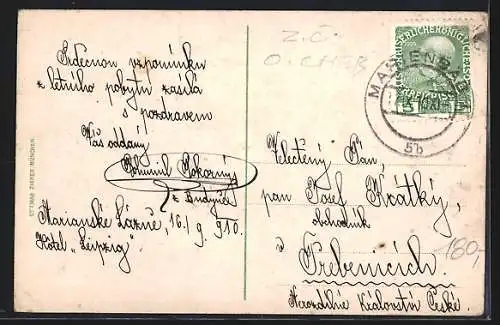 Srdečnou vzpomínku
z letního pobytu zasílá
s pozdravem
Váš oddaný
Bohumil Pokorný
z Budyně
Mariánské Lázně, 16./9. 910.
Hôtel „Leipzig"
OTTMAR ZIEHER, MÜNCHEN
Z.Č.
O. CHEB
MARIENBAD 1
5b
Velectěný Pan,
pan Josef Krátký,
obchodník
v
Třebenicích.
Království České.
180,-